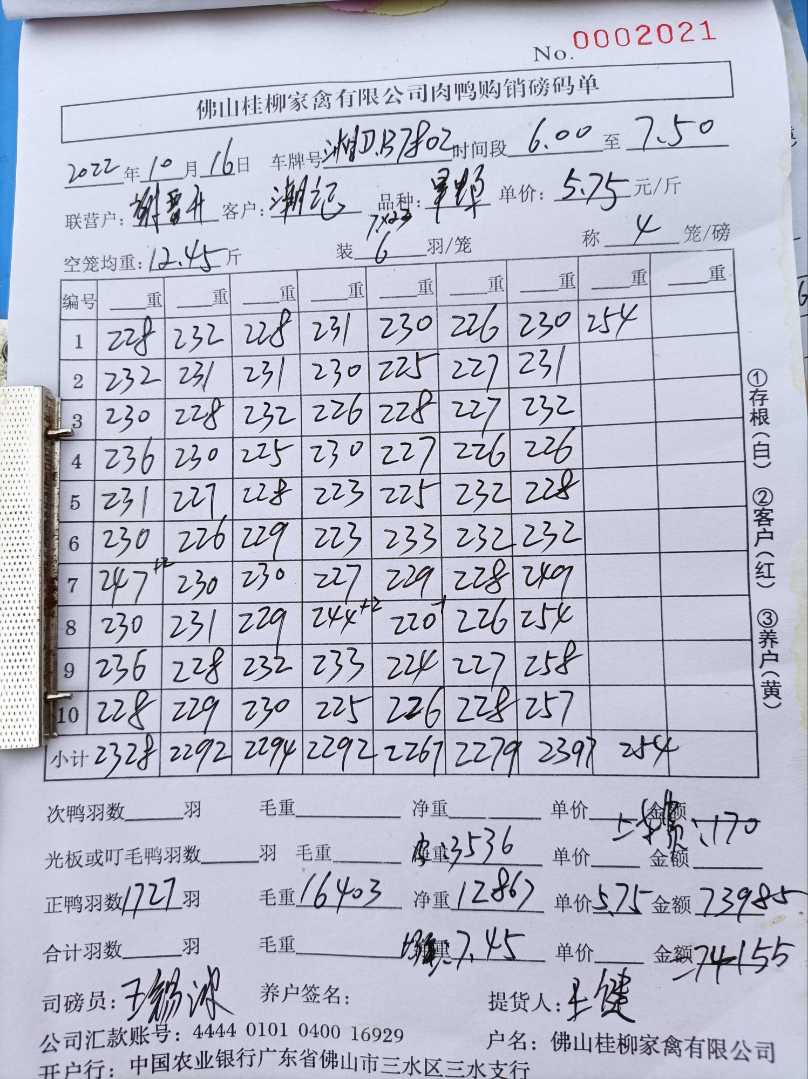 No. 0002021
佛山桂柳家禽有限公司肉鸭购销磅码单
2022年10月16日 车牌号 湘D.B7802 时间段 6.00 至 7.50
联营户: 谢晋升 客户: 潮记 品种: 单价: 5.75 元/斤
7×23
空笼均重: 12.45 斤 装 6 羽/笼 称 4 笼/磅
编号 重 重 重 重 重 重 重 重 重
1 228 232 228 231 230 226 230 254
2 232 231 231 230 225 227 231
3 230 228 232 226 228 227 232
4 236 230 225 230 227 226 226
5 231 227 228 223 225 232 228
6 230 226 229 223 233 232 232
7 247+2 230 230 227 229 228 249
8 230 231 229 244+2 220-1 226 254
9 236 228 232 233 224 227 258
10 228 229 230 225 226 228 257
小计 2328 2292 2294 2292 2267 2279 2397 254
①存根(白) ②客户(红) ③养户(黄)
次鸭羽数 羽 毛重 净重 单价 金额 170
光板或叮毛鸭羽数 羽 毛重 净重 皮:3536 单价 金额
正鸭羽数 1727 羽 毛重 16403 净重 12867 单价 5.75 金额 73985
合计羽数 羽 毛重 7.45 单价 金额 74155
司磅员: 王锡波 养户签名: 提货人: 王健
公司汇款账号: 4444 0101 0400 16929 户名: 佛山桂柳家禽有限公司
开户行: 中国农业银行广东省佛山市三水区三水支行